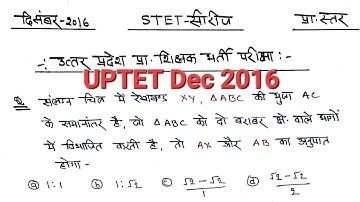 दिसंबर-2016 STET-सीरीज प्रा. स्तर
-: उत्तर प्रदेश प्रा. शिक्षक भर्ती परीक्षा :-
UPTET Dec 2016
Q संलग्न चित्र में रेखाखण्ड XY, △ABC की भुजा AC
के समानांतर है, तथा △ABC को दो बराबर क्षे. वाले भागों
में विभाजित करती है, तो AX और AB का अनुपात
होगा -
ⓐ 1:1 ⓑ 1:√2 ⓒ √2-√2/1 ⓓ √2-√2/2